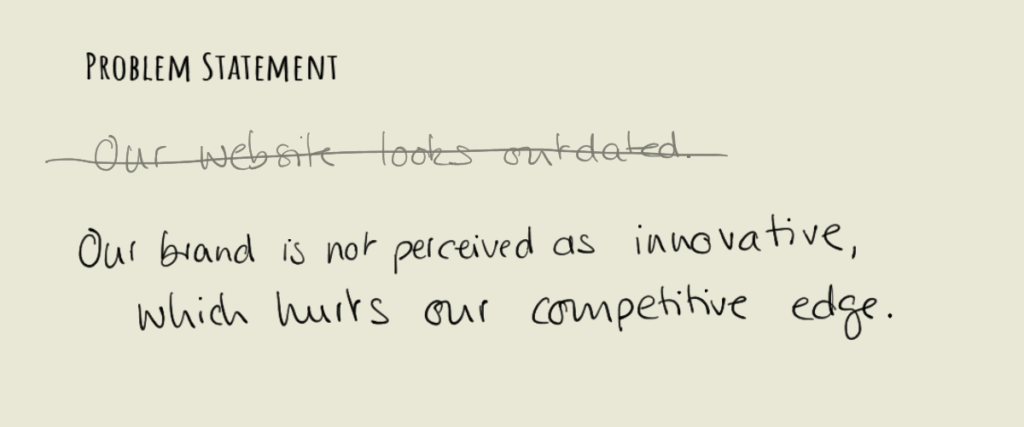 PROBLEM STATEMENT
Our website looks outdated.
Our brand is not perceived as innovative,
which hurts our competitive edge.